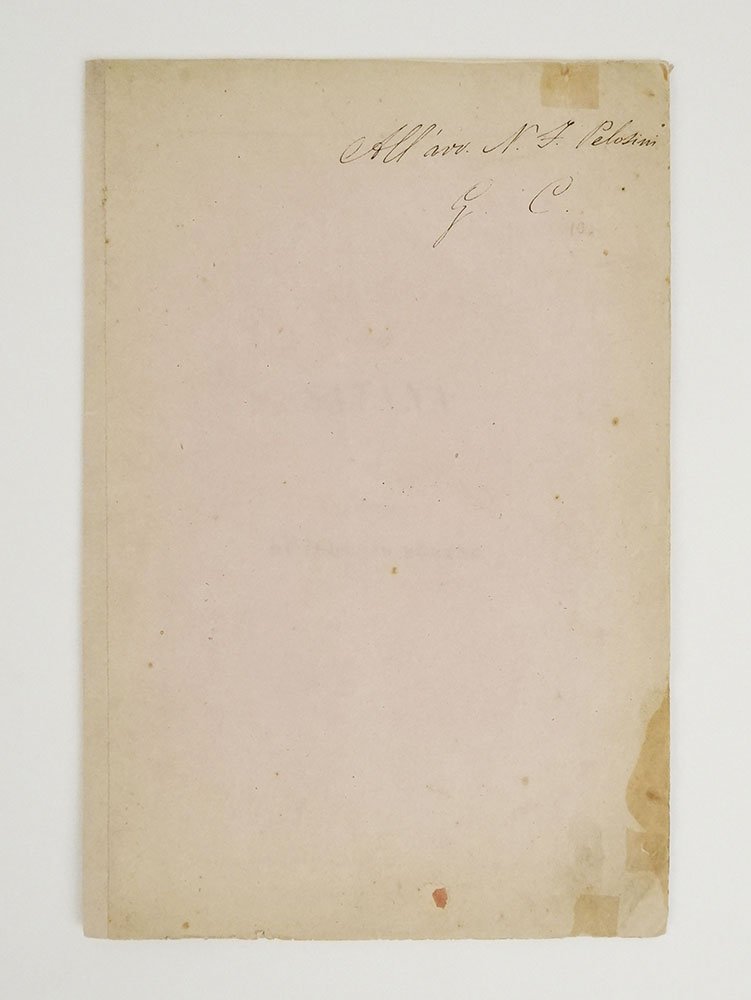 All'avv. N. F. Pelosini
G. C.